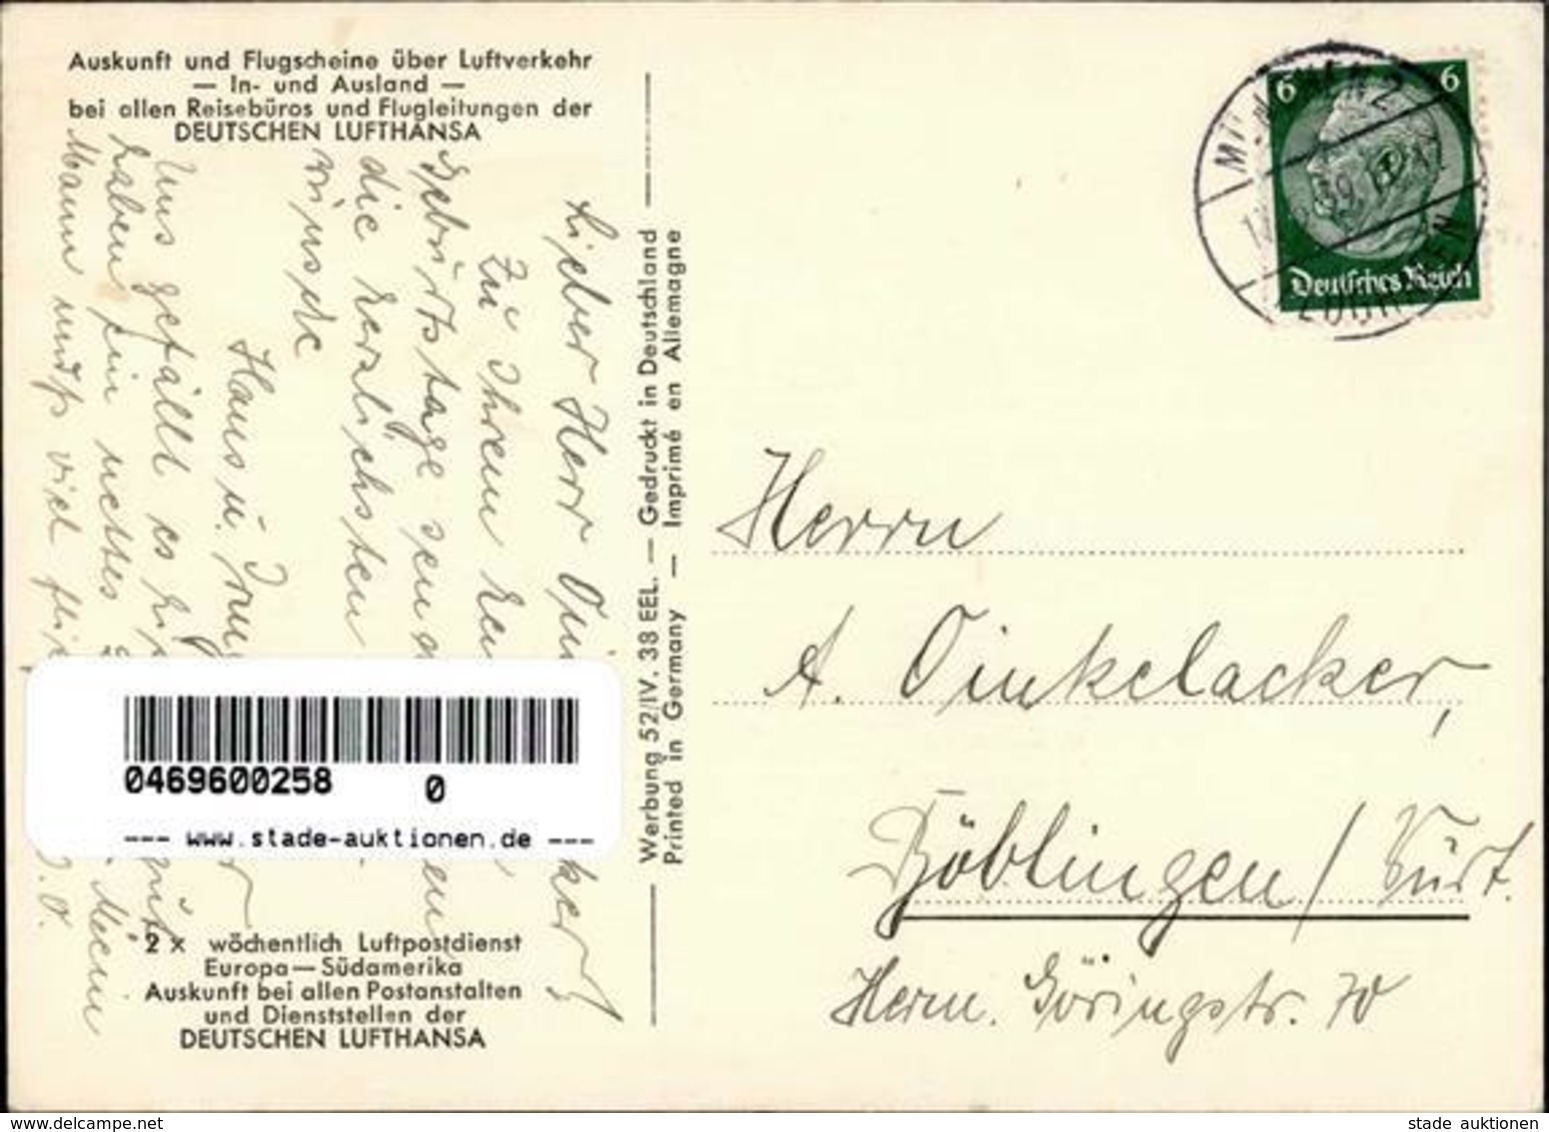 Auskunft und Flugscheine über Luftverkehr
— In- und Ausland —
bei allen Reisebüros und Flugleitungen der
DEUTSCHEN LUFTHANSA
Lieber Herr
Zu Ihrem
Geburtstage
die herzlichsten
wünsche
Hans u.
Uns gefällt es
haben ein nettes
Mein
Mann muß viel
2 x wöchentlich Luftpostdienst
Europa—Südamerika
Auskunft bei allen Postanstalten
und Dienststellen der
DEUTSCHEN LUFTHANSA
0469600258 0
--- www.stade-auktionen.de ---
Werbung 52/IV. 38 EEL. — Gedruckt in Deutschland
Printed in Germany — Imprimé en Allemagne
6 6
Deutsches Reich
Herrn
A. Dinkelacker,
Böblingen / Württ.
Herm. Göringstr. 70
delcampe.net
stade auktionen